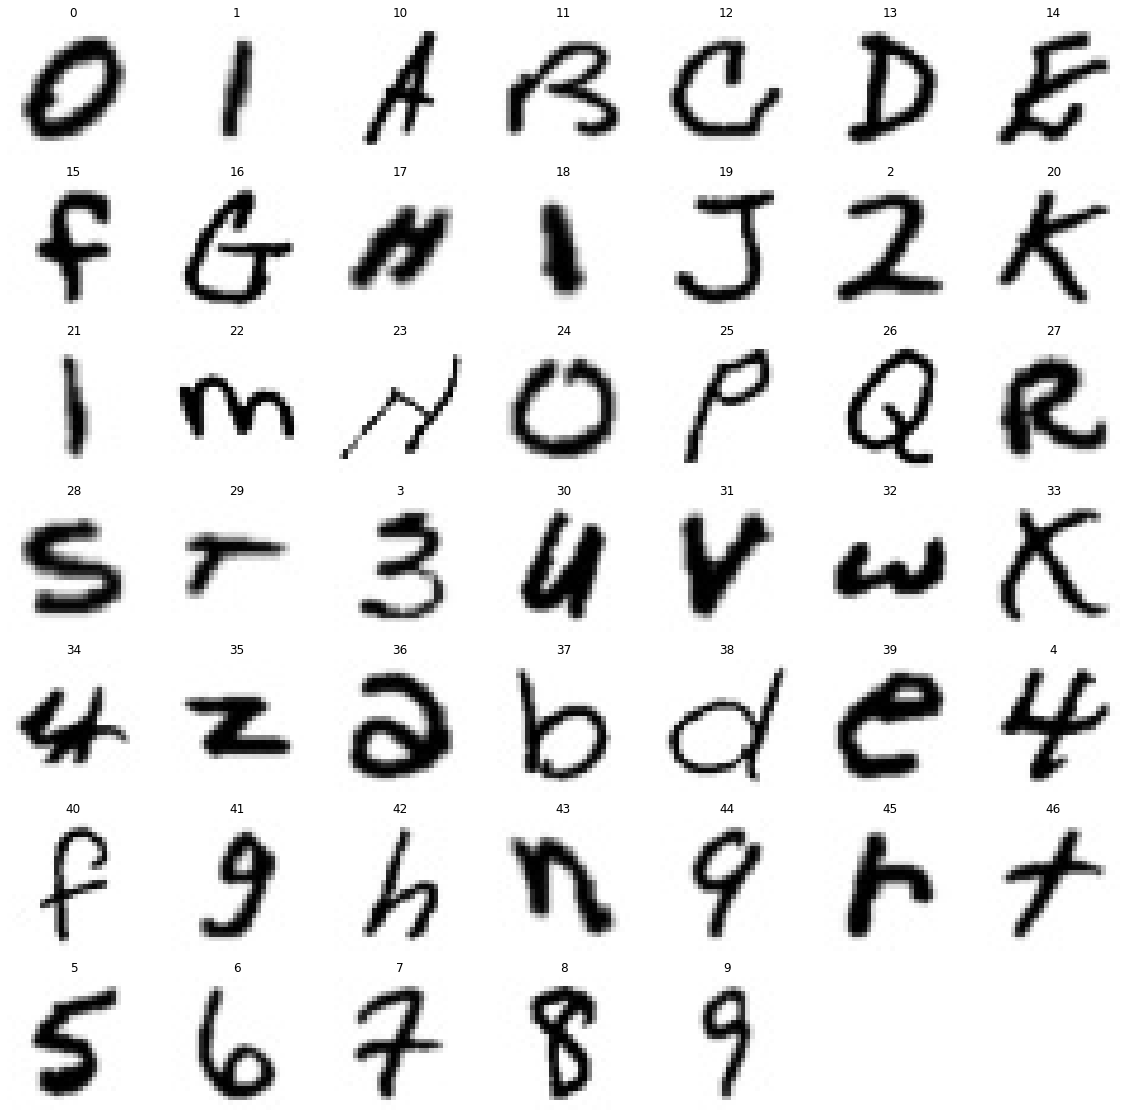 0 1 10 11 12 13 14
0 1 A B C D E
15 16 17 18 19 2 20
f G H I J 2 K
21 22 23 24 25 26 27
l m N O P Q R
28 29 3 30 31 32 33
S T 3 u V w X
34 35 36 37 38 39 4
Y z a b d e 4
40 41 42 43 44 45 46
f g h n q r t
5 6 7 8 9
5 6 7 8 9